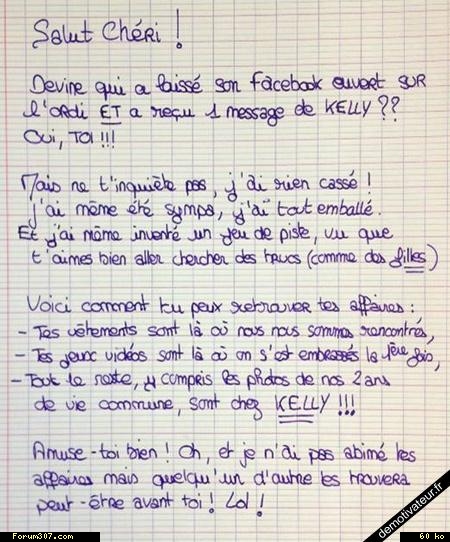 Salut Chéri !
Devine qui a laissé son Facebook ouvert SUR
l'ordi ET a reçu 1 message de KELLY ??
Oui, TOI !!!
Mais ne t'inquiète pas, j'ai rien cassé !
j'ai même été sympa, j'ai tout emballé.
Et j'ai même inventé un jeu de piste, vu que
t'aimes bien aller chercher des trucs (comme des filles)
Voici comment tu peux retrouver tes affaires :
- Tes vêtements sont là où nous nous sommes rencontrés,
- Tes jeux vidéos sont là où on s'est embrassés la 1ère fois,
- Tout le reste, y compris les photos de nos 2 ans
de vie commune, sont chez KELLY !!!
Amuse-toi bien ! Oh, et je n'ai pas abimé les
affaires mais quelqu'un d'autre les trouvera
peut-être avant toi ! Lol !
demotivateur.fr
Forum307.com
60 ko